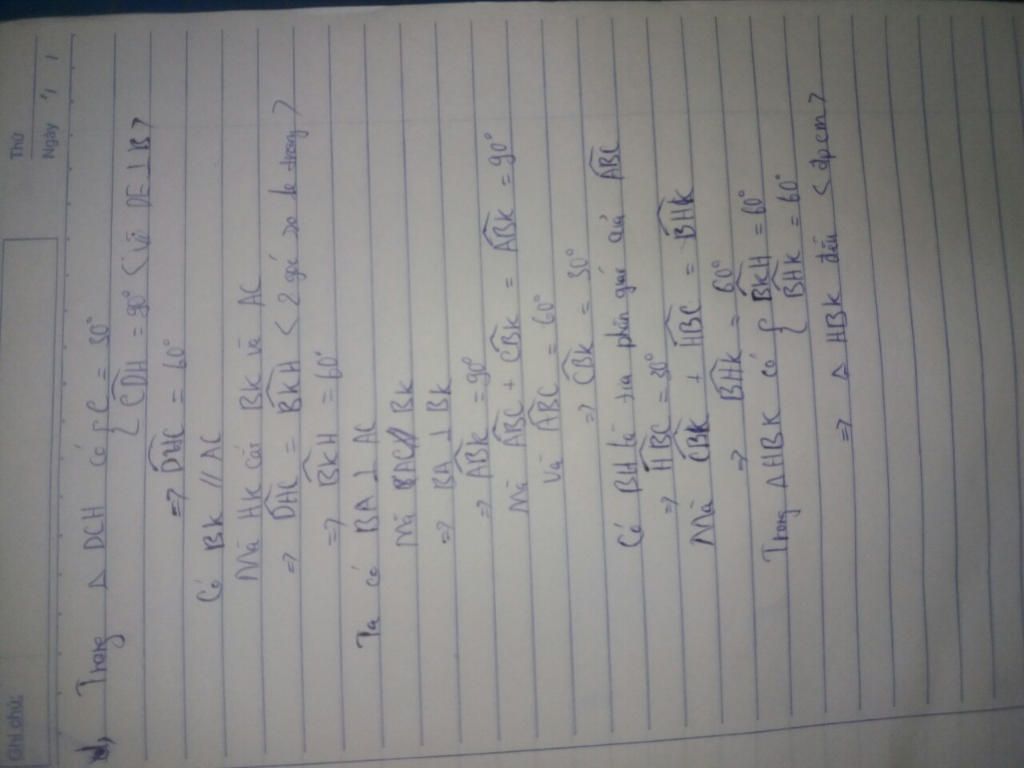 Ghi chú:
Thứ
Ngày / /
d, Trong △ DCH có { Ĉ = 30°
{ CDH = 90° < vì DE ⊥ B >
=> DHC = 60°
Có BK // AC
Mà HK cắt BK và AC
=> DHC = BKH < 2 góc so le trong >
=> BKH = 60°
Ta có BA ⊥ AC
Mà AC // BK
=> BA ⊥ BK
=> ABK = 90°
Mà ABC + CBK = ABK = 90°
Và ABC = 60°
=> CBK = 30°
Có BH là tia phân giác của ABC
=> HBC = 30°
Mà CBK + HBC = BHK
=> BHK = 60°
Trong △ HBK có { BKH = 60°
{ BHK = 60°
=> △ HBK đều < đpcm >